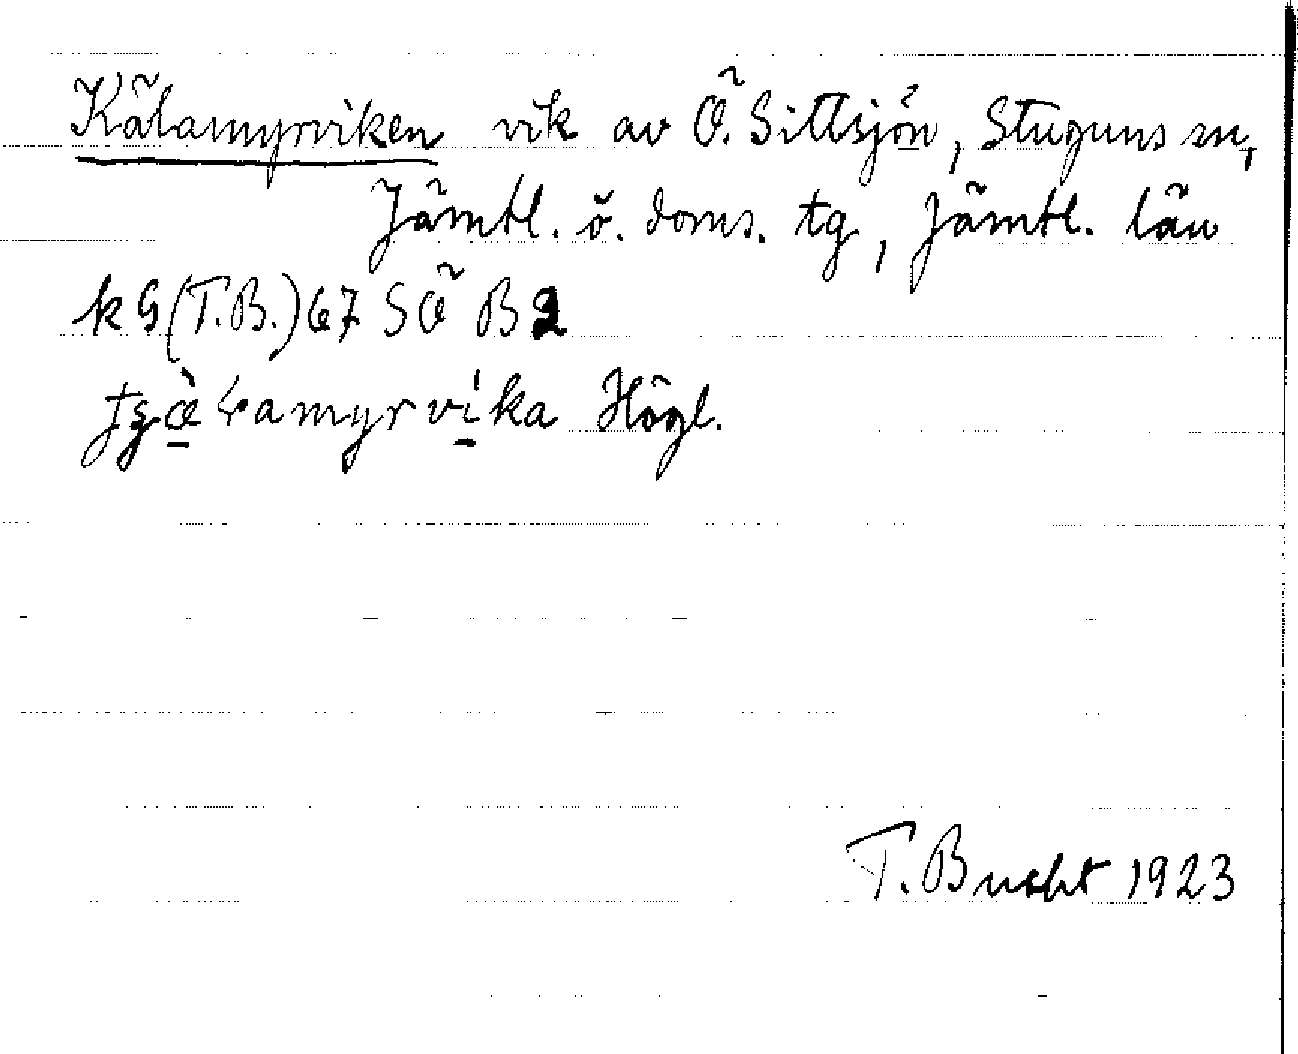 Kälamyrviken vik av Ö. Sittsjön, Stuguns sn,
Jämtl. ö. doms. tg, Jämtl. län
k G (T.B.) 67 SÖ B 2
vika Högl.
T. Bucht 1923